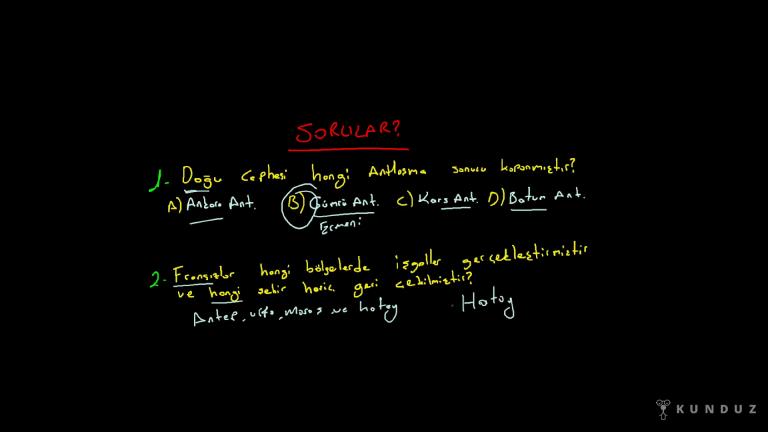 SORULAR?
1- Doğu Cephesi hangi Antlaşma sonucu kapanmıştır?
A) Ankara Ant. B) Gümrü Ant. C) Kars Ant. D) Batum Ant.
Ermeni
2- Fransızlar hangi bölgelerde işgaller gerçekleştirmiştir
ve hangi şehir hariç geri çekilmiştir?
Antep, urfa, maraş ve hatay Hatay
KUNDUZ